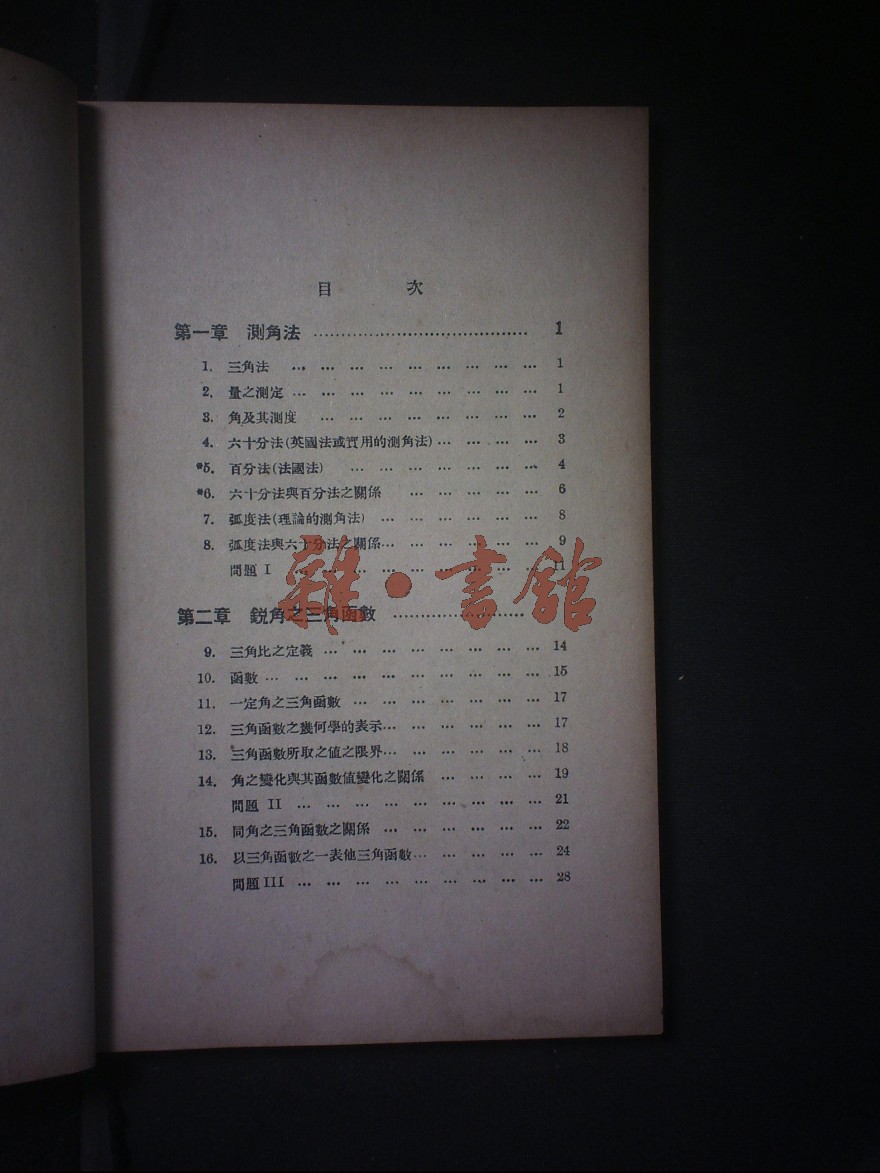 目 次
第一章 測角法 …………………………………… 1
1. 三角法 … … … … … … … … … 1
2. 量之測定 … … … … … … … … … 1
3. 角及其測度 … … … … … … … … 2
4. 六十分法(英國法或實用的測角法) … … … … 3
*5. 百分法(法國法) … … … … … … … 4
*6. 六十分法與百分法之關係 … … … … … 6
7. 弧度法(理論的測角法) … … … … … … 8
8. 弧度法與六十分法之關係 … … … … … … 9
問題 I … … … … … … … … … 11
雜·書館
第二章 銳角之三角函數 ……………………
9. 三角比之定義 … … … … … … … … 14
10. 函數 … … … … … … … … … … 15
11. 一定角之三角函數 … … … … … … … 17
12. 三角函數之幾何學的表示 … … … … … … 17
13. 三角函數所取之值之限界 … … … … … … 18
14. 角之變化與其函數値變化之關係 … … … … 19
問題 II … … … … … … … … … 21
15. 同角之三角函數之關係 … … … … … … 22
16. 以三角函數之一表他三角函數 … … … … … 24
問題 III … … … … … … … … … 28